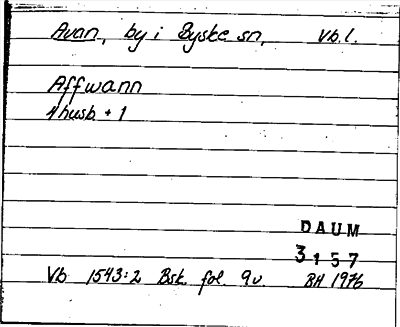 Avan, by i Byske sn, Vb. l.
Affwann
4 husb. + 1
DAUM
3157
Vb 1543:2 Bsk. fol. 9v. BH 1976